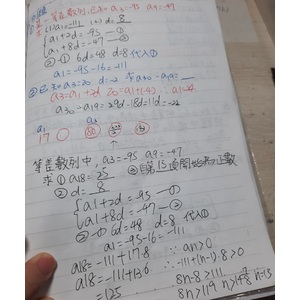 一等差數列,已知 a3=-95 a9=-47
(1)a1=-111 (2) d=8
{a1+2d=-95 -①
a1+8d=-47 -②
②-① 6d=48 d=8 代入①
a1=-95-16=-111
a3=20 d=-2 求a30-a19=
a3=a1+2d 20=a1+(-4)
a30-a19=29d-18d=11d=-22
a1 a3
17
等差數列中, a3=-95 a9=-47
求 ① a18=25 ③第15項開始為正數
② d=8
{a1+2d=-95 -①
a1+8d=-47 -②
②-① 6d=48 d=8 代入①
a1=-95-16=-111
a18=-111+17·8 ∵ an>0
a18=-111+136 ∴ -111+(n-1)·8>0
=25 8n-8>111
8n>119 n=15